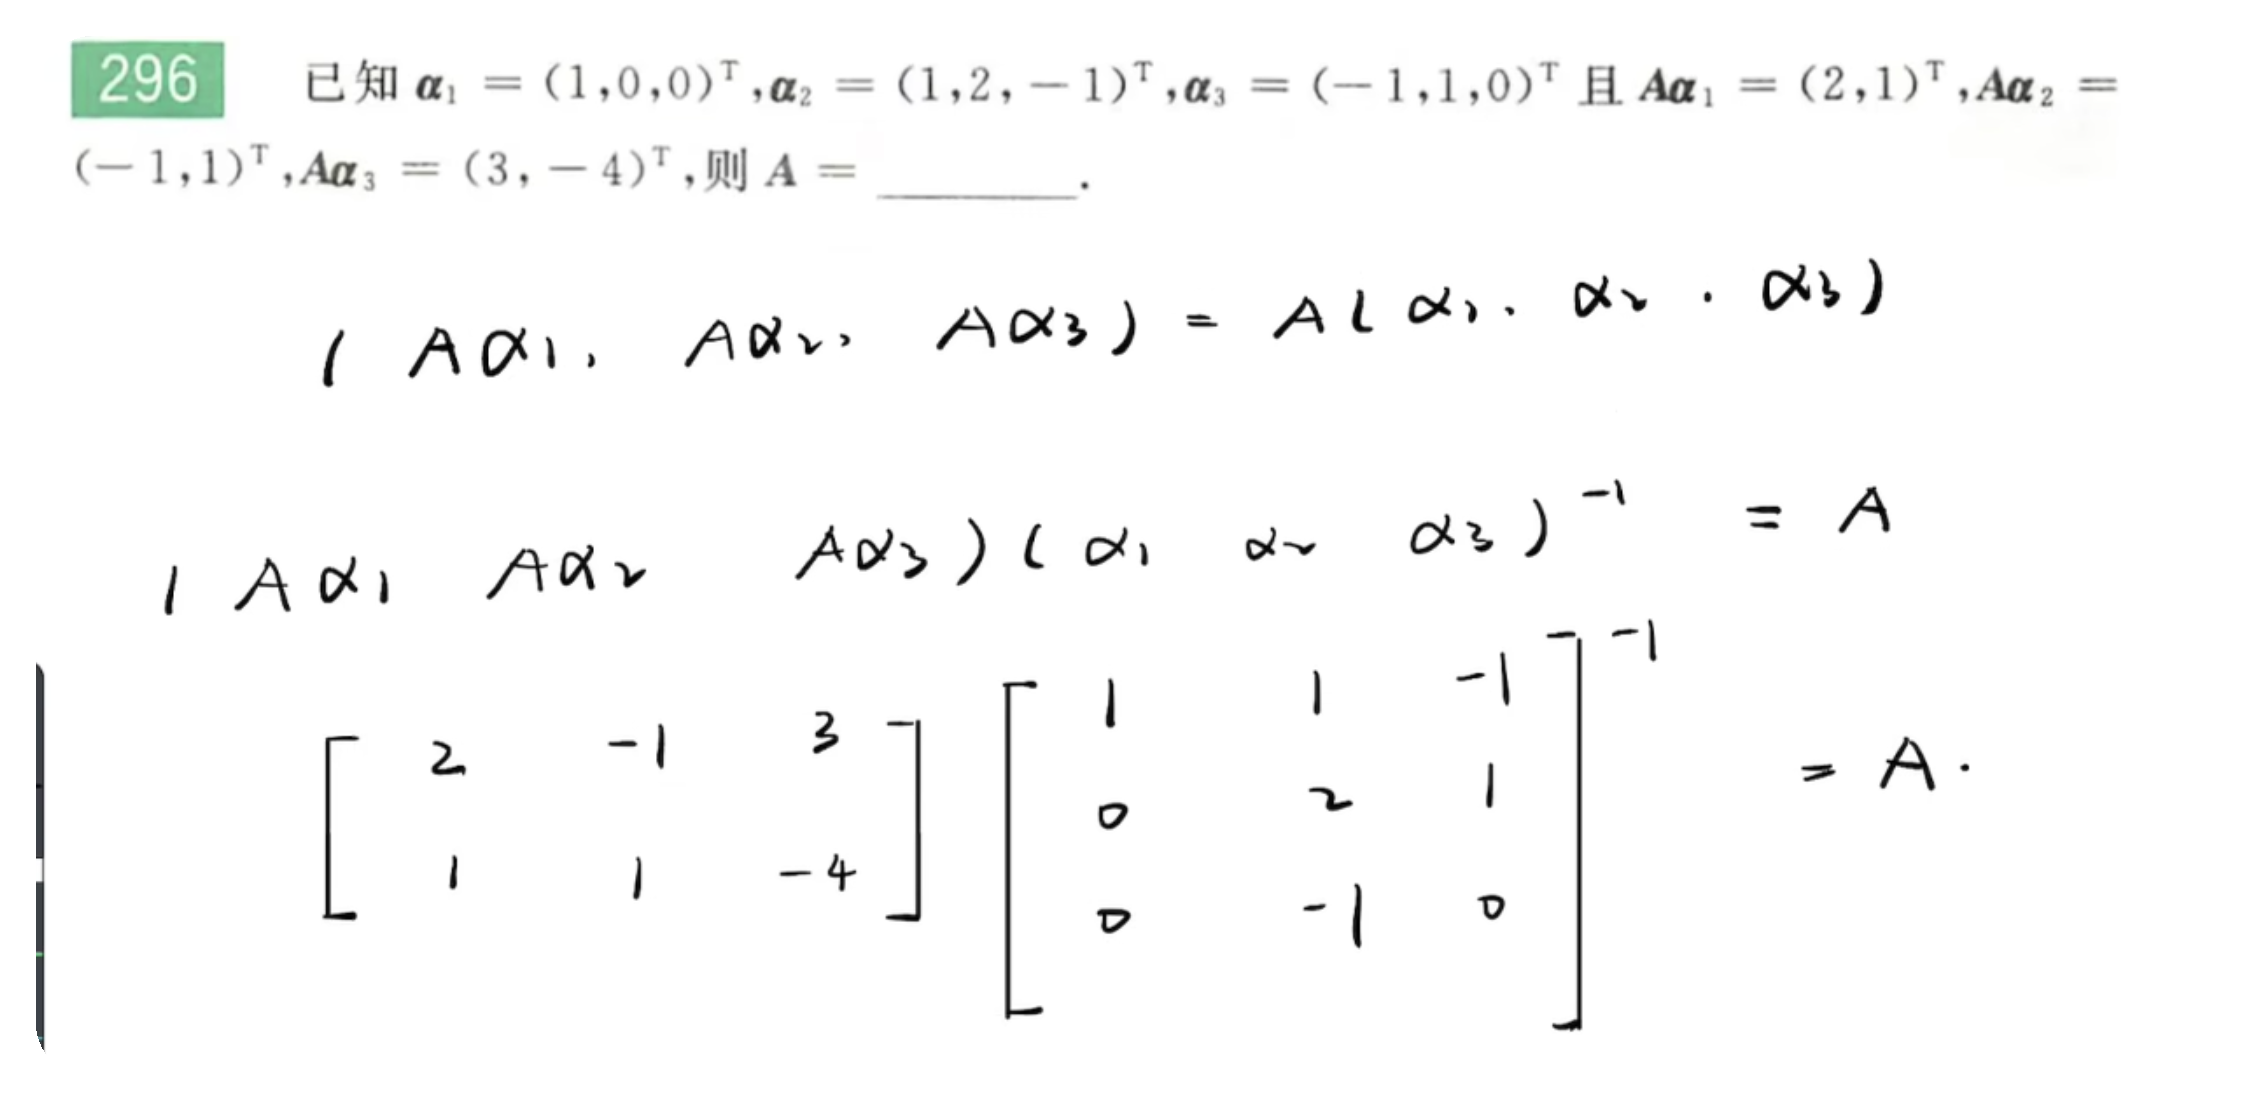 296 已知 α₁ = (1,0,0)ᵀ,α₂ = (1,2,-1)ᵀ,α₃ = (-1,1,0)ᵀ 且 Aα₁ = (2,1)ᵀ,Aα₂ =
(-1,1)ᵀ,Aα₃ = (3,-4)ᵀ,则 A = ________.
( Aα₁, Aα₂, Aα₃ ) = A( α₁, α₂ , α₃ )
( Aα₁ Aα₂ Aα₃ ) ( α₁ α₂ α₃ )⁻¹ = A
[ 2 -1 3 ; 1 1 -4 ] [ 1 1 -1 ; 0 2 1 ; 0 -1 0 ]⁻¹ = A.